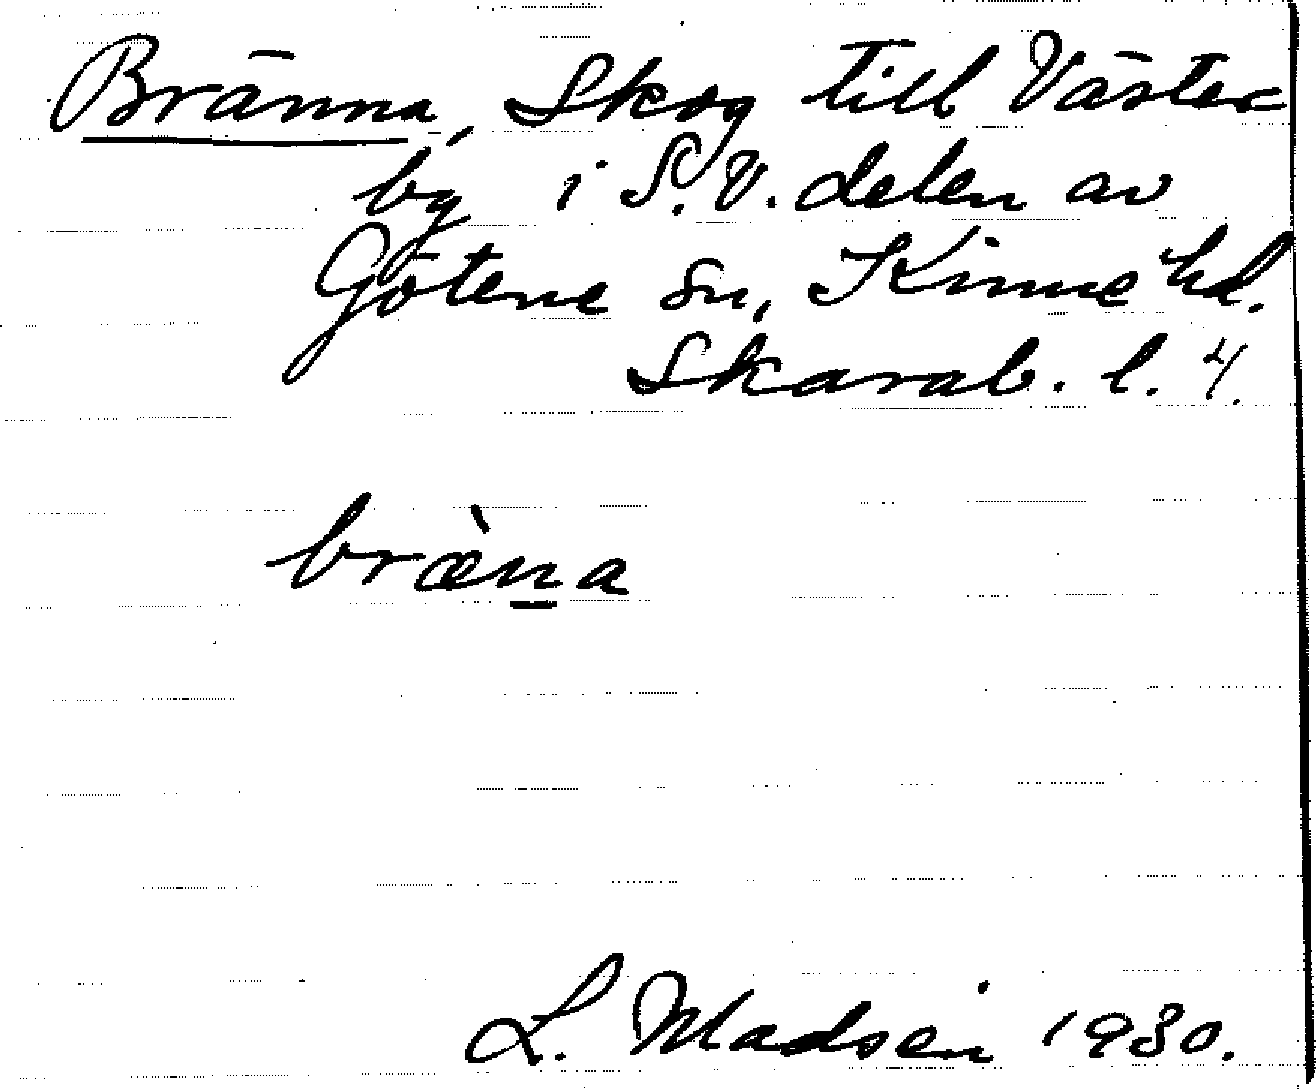 Bränna, Skog till Väster
by i S.V. delen av
Götene sn, Kinne hd.
Skarab. l. 4.
bræ̀n̲a
L. Madsen 1930.